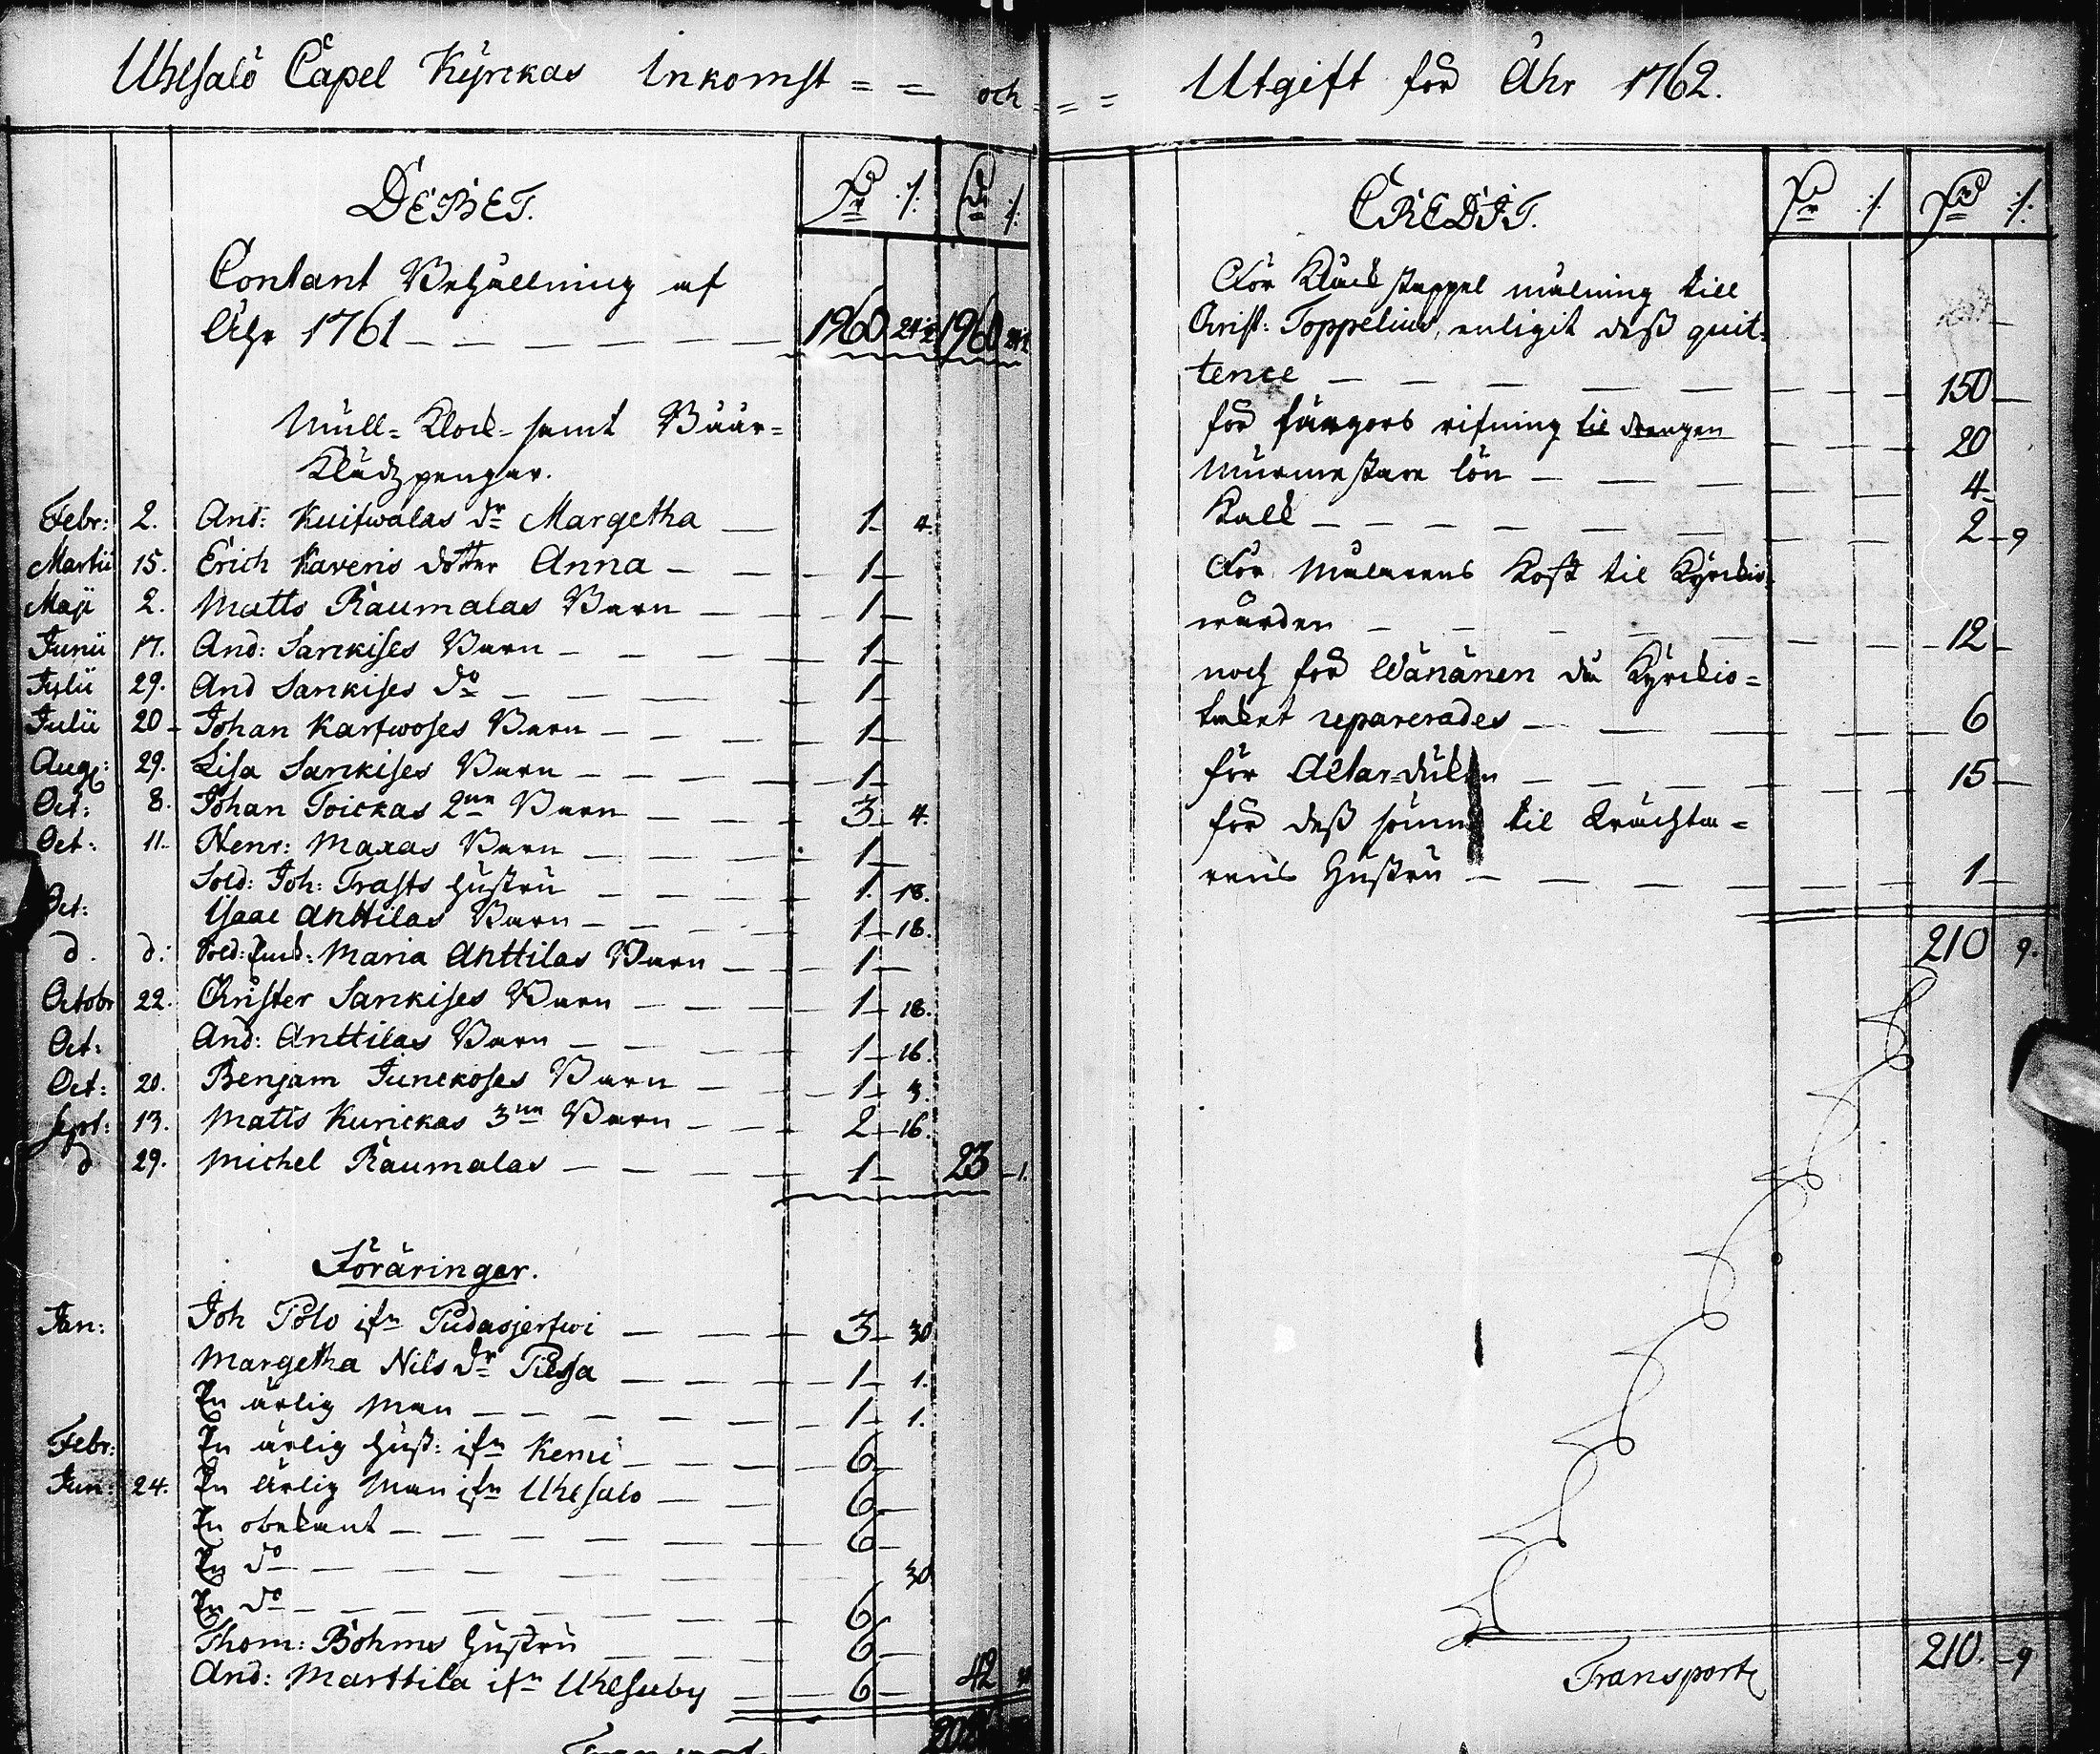 Uhlsalö Capel Kyrckas Inkomst = = och = = Utgift för Åhr 1762.
DEBET.
Contant Behållning af
Åhr 1761 — — — — — — 1960 24½ 1960 24½
Mull= Klock= samt Båår=
Klädz pengar.
Febr: 2. And: Kuifwalas dr Margetha — 1 — 4.
Martii 15. Erich Karenis dotter Anna — — 1 —
Maji 2. Matts Raumalas Barn — — 1 —
Junii 17. And: Sarckises Barn — — — 1 —
Julii 29. And Sarckises do — — — 1 —
Julii 20 — Johan Karfwoses Barn — — — 1 —
Aug: 29. Lisa Sarckises Barn — — — 1 —
Oct: 8. Johan Toickas 2ne Barn — — 3 — 4.
Oct: 11. Henr: Maxas Barn — — — 1 —
Sold: Joh: Trasts hustru — — — 1. 18.
Oct: Isaac Anttilas Barn — — — 1 — 18.
d. d: Sold: Maria Anttilas Barn — 1 —
Octobr 22. Christer Sarckises Barn — — — 1 — 18.
Oct: And: Anttilas Barn — — — 1 — 16.
Oct: 20. Benjam Junckoses Barn — — 1 — 3.
Sept: 13. Matts Kurickas 3ne Barn — — 2 — 16.
d 29. Michel Raumalas — — — — 1 — 23 — 1.
Föräringer.
Jan: Joh Polo ifn Pudasjerfwi — — 3 — 30
Margetha Nils dr Pilssa — — — 1 — 1.
En ärlig Man — — — — — 1 — 1.
Febr: En ärlig hust: ifn Kemi — — — 6 —
Jun: 24. En ärlig Man ifn Uhlsalo — — 6 —
En obekant — — — — — 6 —
En do — — — — — — 30
En do — — — — — — 6
Thom: Böhms hustru — — — 6 —
And: Marttila ifn Uhlsaby — — 6 — 42
Transport
CREDIT.
För Klockstappel målning till
Christ: Toppelius, enligit dess quit=
tence — — — — — — — 150 —
för färgors rifning til drengen — — 20
Murmestare lön — — — — — 4 —
Kalk — — — — — — — 2 — 9
För Målarens Kost til Kyrckio=
wärden — — — — — — — 12 —
noch för Wänänen då Kyrckio=
taket reparerades — — — — — 6
för Altar=duken — — — — — 15 —
för dess sömn til
Hustru — — — — — — — 1 —
210 9.
Transport 210. — 9